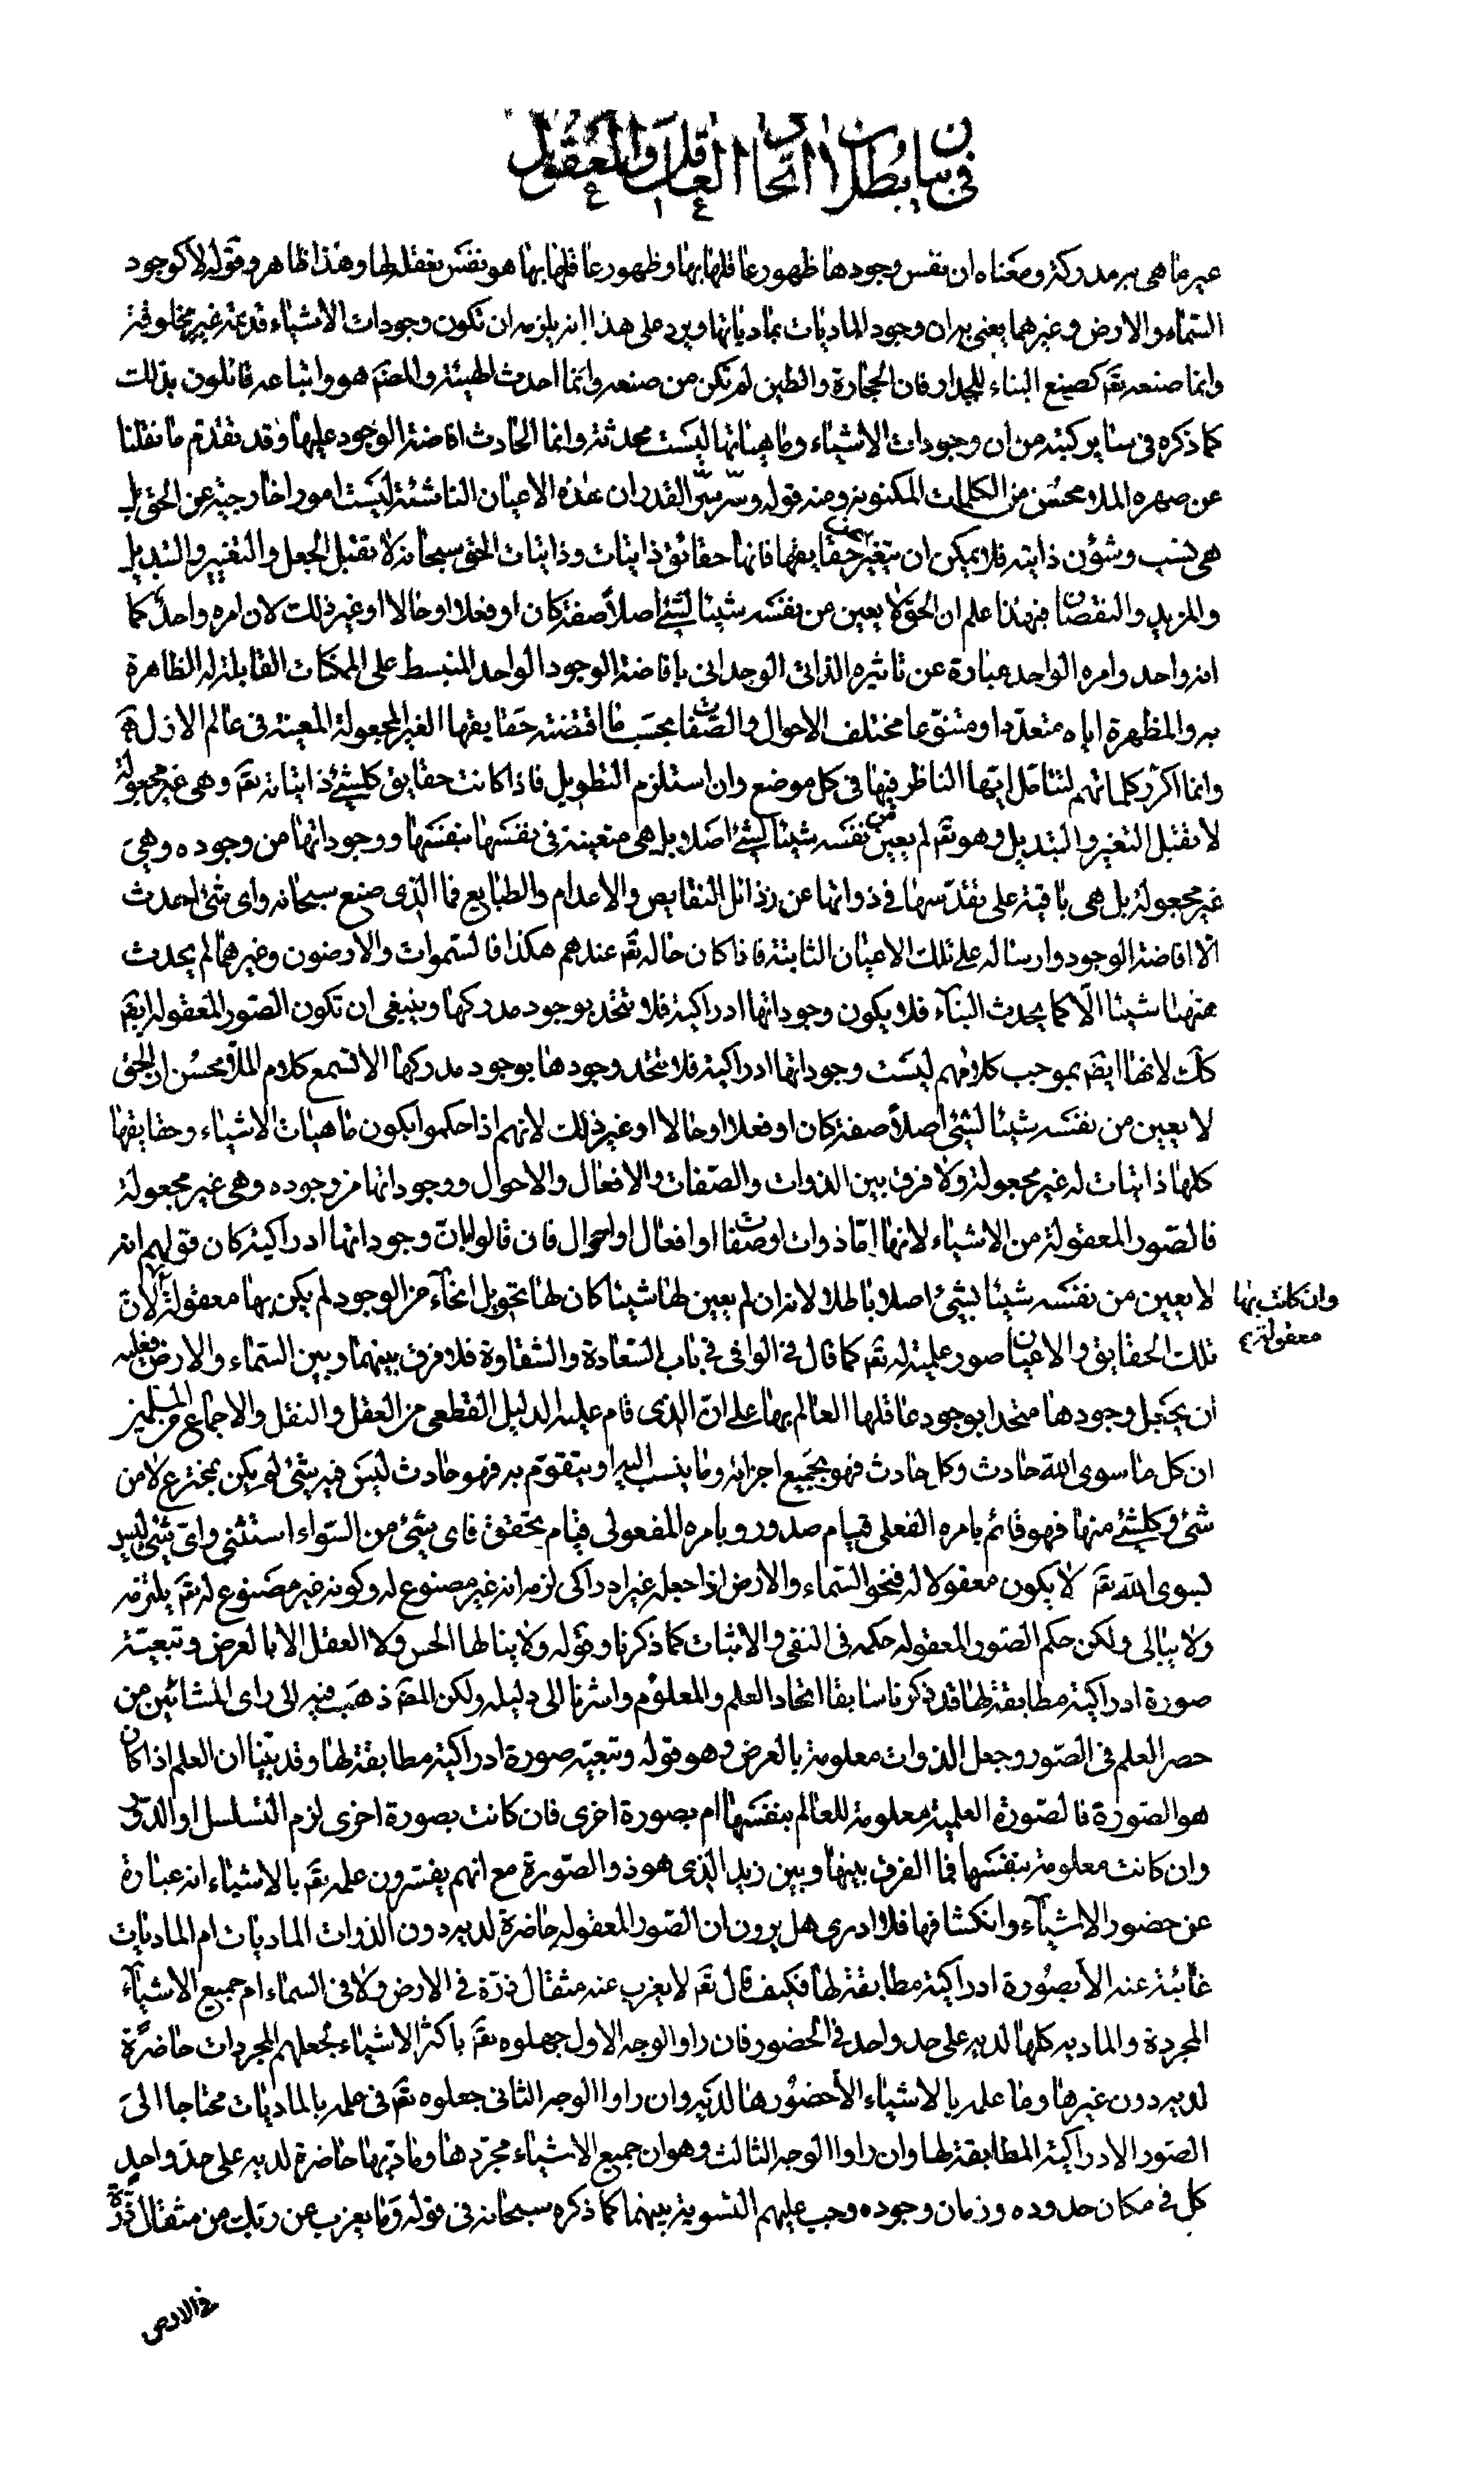 في بيان بطلان اتحاد العاقل والمعقول
غير ما هي به مدركة ومعناه ان نفس وجودها ظهور عاقلها بها وظهور عاقلها بها هو نفس تعقله لها وهذا ظاهر وقوله لا كوجود
السّماء والارض وغيرهما يعني به ان وجود الماديات بمادياتها ويرد على هذا انه يلزمه ان تكون وجودات الاشياء قديمة غير مخلوقة
وانما صنعه تقم كصنع البناء للجدار فان الحجارة والطين لم تكن من صنعه وانما احدث الهيئة والمصَم هو واتباعه قائلون بذلك
كما ذكره في ساير كتبه من ان وجودات الاشياء وماهياتها ليست محدثة وانما الحادث افاضة الوجود عليها وقد تقدم ما نقلنا
عن صهره الملا محسن من الكلمات المكنونة ومنه قوله وسّر سّر القدر ان هذه الاعيان الثابتة ليست امورا خارجية عن الحق بل
هي نسب وشؤن ذاتيه فلا يمكن ان يتغير حقايقها فانها حقائق ذاتيات وذاتيات الحق سبحانه لا تقبل الجعل والتغيير والتبديل
والمزيد والنقصان فبهذا علم ان الحق لا يعين من نفسه شيئا لشئ اصلاً صفة كان او فعلا او حالا او غير ذلك لان امره واحد كما
انه واحد وامره الواحد عبارة عن تاثيره الذاتي الوحداني بافاضة الوجود الواحد المنبسط على الممكنات القابلة له الظاهرة
به والمظهرة اياه متعدّدا ومتنوّعا مختلف الاحوال والصّفات بحسب ما اقتضته حقايقها الغير المجعولة المعينة في عالم الازل
وانما اكرّر كلماتهم لتتأمّل ايّها الناظر فيها في كل موضع وان استلزم التطويل فاذا كانت حقايق كلشئ ذاتياته تقم وهي غير مجعولة
لا تقبل التغير والتبديل وهو تقم لم يعين من نفسه شيئا لشئ اصلا بل هي متعينة في نفسها بنفسها ووجوداتها من وجوده وهي
غير مجعولة بل هي باقية على تقدّسها في ذواتها عن رذائل النقايص والاعدام والطبايع فما الذي صنع سبحانه واي شئ احدث
الّا افاضة الوجود وارساله على تلك الاعيان الثابتة فاذا كان حاله تقم عندهم هكذا فالسّموات والارضون وغيرهما لم يحدث
منها شيئا الّا كما يحدث البنّاء فلا يكون وجوداتها ادراكية فلا تتحد بوجود مدركها وينبغي ان تكون الصّور المعقولة ايضم
كك لانها ايضم بموجب كلامهم ليست وجوداتها ادراكية فلا يتحد وجودها بوجود مدركها الا تسمع كلام الملّا محسن ان الحق
لا يعين من نفسه شيئا لشئ اصلاً صفة كان او فعلا او حالا او غير ذلك لانهم اذا حكموا بكون ماهيات الاشياء وحقايقها
كلها ذاتيات له غير مجعولة ولا فرق بين الذوات والصّفات والافعال والاحوال ووجوداتها من وجوده وهي غير مجعولة
فالصّور المعقولة من الاشياء لانها امّا ذوات او صفات او افعال او احوال فان قالوا بانّ وجوداتها ادراكية كان قولهم انه
لا يعين من نفسه شيئا لشئ اصلا باطلا لانه ان لم يعين لها شيئا كان لها بتحويل انحاء من الوجود لم يكن بها معقولة لانّ
وان كانت بها
معقولة
تلك الحقايق والاعيان صور علمية له تقم كما قال في الوافي في باب السّعادة والشقاوة فلا فرق بينهما وبين السّماء والارض فعليه
ان يجعل وجودها متحدا بوجود عاقلها العالم بها على انّ الذي قام عليه الدليل القطعي من العقل والنقل والاجماع من المسلمين
ان كل ما سوى الله حادث وكل حادث فهو بجميع اجزائه وما ينسب اليه او يتقوّم به فهو حادث ليس فيه شئ لم يكن بمخترع لا من
شئ وكلشئ منها فهو قائم بامره الفعلي قيام صدور وبامره المفعولي قيام تحقق فاي شئ من السّواء استثنى وايّ شئ ليس
لسوى الله تقم لا يكون معقولا له فنحو السّماء والارض اذا جعله غير ادراكي لزمه انه غير مصنوع له وكونه غير مصنوع له تقم يلتزمه
ولا يبالي ولكن حكم الصّور المعقولة حكمه في النفي والاثبات كما ذكرنا وقوله ولا ينالها الحس ولا العقل الا بالعرض وتبعيّة
صورة ادراكية مطابقة لها قد ذكرنا سابقا اتحاد العلم والمعلوم واشرنا الى دليله ولكن المصَم ذهب فيه الى راى المشائين من
حصر العلم في الصّور وجعل الذوات معلومة بالعرض وهو قوله وتبعيّة صورة ادراكية مطابقة لها وقد بيّنا ان العلم اذا كان
هو الصّورة فالصّورة العلمية معلومة للعالم بنفسها ام بصورة اخرى فان كانت بصورة اخرى لزم التسلسل او الدّور
وان كانت معلومة بنفسها فما الفرق بينها وبين زيد الذي هو ذو الصّورة مع انهم يفسّرون علمه تقم بالاشياء انه عبارة
عن حضور الاشيآء وانكشافها فلا ادري هل يرون ان الصّور المعقولة حاضرة لديه دون الذوات الماديات ام الماديات
غائبة عنه الا بصورة ادراكية مطابقة لها فكيف قال تقم لا يعزب عنه مثقال ذرّة في الارض ولا في السماء ام جميع الاشيآء
المجردة والماديه كلها لديه على حد واحد في الحضور فان راوا الوجه الاول جهلوه تقم باكثر الاشياء بجعلهم المجردات حاضرة
لديه دون غيرها وما علمه بالاشياء الا حضورها لديه وان راوا الوجه الثاني جعلوه تقم في علمه بالماديات محتاجا الى
الصّور الادراكية المطابقة لها وان راوا الوجه الثالث وهو ان جميع الاشياء مجرّدها ومادّيها حاضرة لديه على حدّ واحدٍ
كل في مكان حدوده وزمان وجوده وجب عليهم التسوية بينهما كما ذكره سبحانه في قوله وما يعزب عن ربك من مثقال ذرّة
في الارض